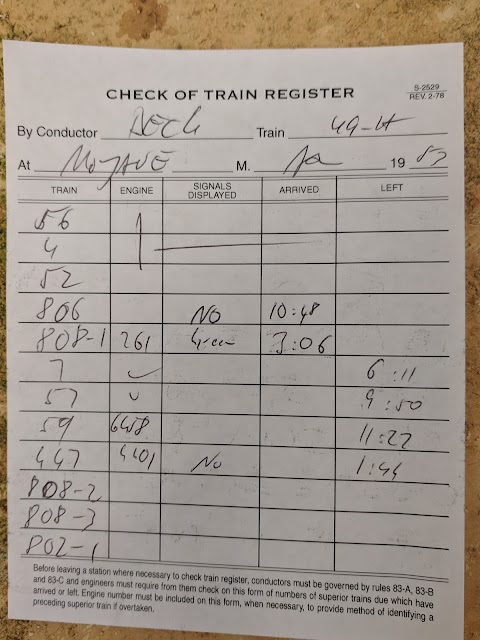 CHECK OF TRAIN REGISTER
S-2529
REV. 2-78
By Conductor Train 49-
At MOJAVE M. 19
TRAIN ENGINE SIGNALS DISPLAYED ARRIVED LEFT
56
4
52
806 NO 10:48
808-1 261 Green 3:06
7 ✓ 6:11
57 ✓ 9:50
59 6458 11:22
447 4401 No 1:44
808-2
808-3
802-1
Before leaving a station where necessary to check train register, conductors must be governed by rules 83-A, 83-B
and 83-C and engineers must require from them check on this form of numbers of superior trains due which have
arrived or left. Engine number must be included on this form, when necessary, to provide method of identifying a
preceding superior train if overtaken.